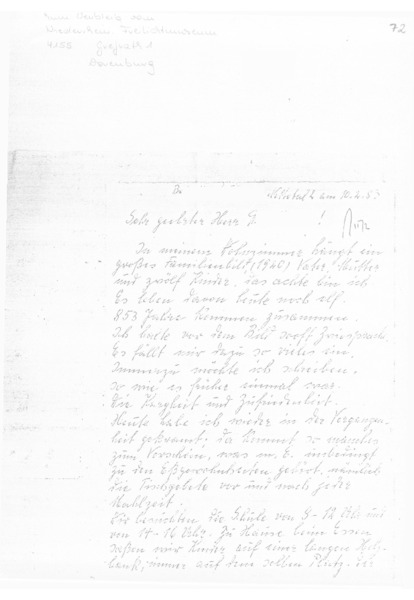 72
4136
am 10.4.83
Sehr geehrter Herr G. !
In meinem Wohnzimmer hängt ein
großes Familienbild, (1940) Vater, Mutter
und zwölf Kinder, das achte bin ich
Es leben davon heute noch elf.
853 Jahre kommen zusammen.
Ich halte vor dem Bild so oft Zwiesprache.
Es fällt mir dazu so vieles ein.
Immerzu möchte ich schreiben,
so wie es früher einmal war.
Die und Zufriedenheit.
Heute habe ich wieder in der Vergangen-
heit gekramt, da kommt so manches
zum Vorschein, was m. E. unbedingt
zu den Eßgewohnheiten gehört, nämlich
die Tischgebete vor und nach jeder
Mahlzeit.
Wir besuchten die Schule von 8-12 Uhr und
von 14-16 Uhr. Zu Hause beim Essen
saßen wir Kinder auf einer langen Holz-
bank, immer auf dem selben Platz.